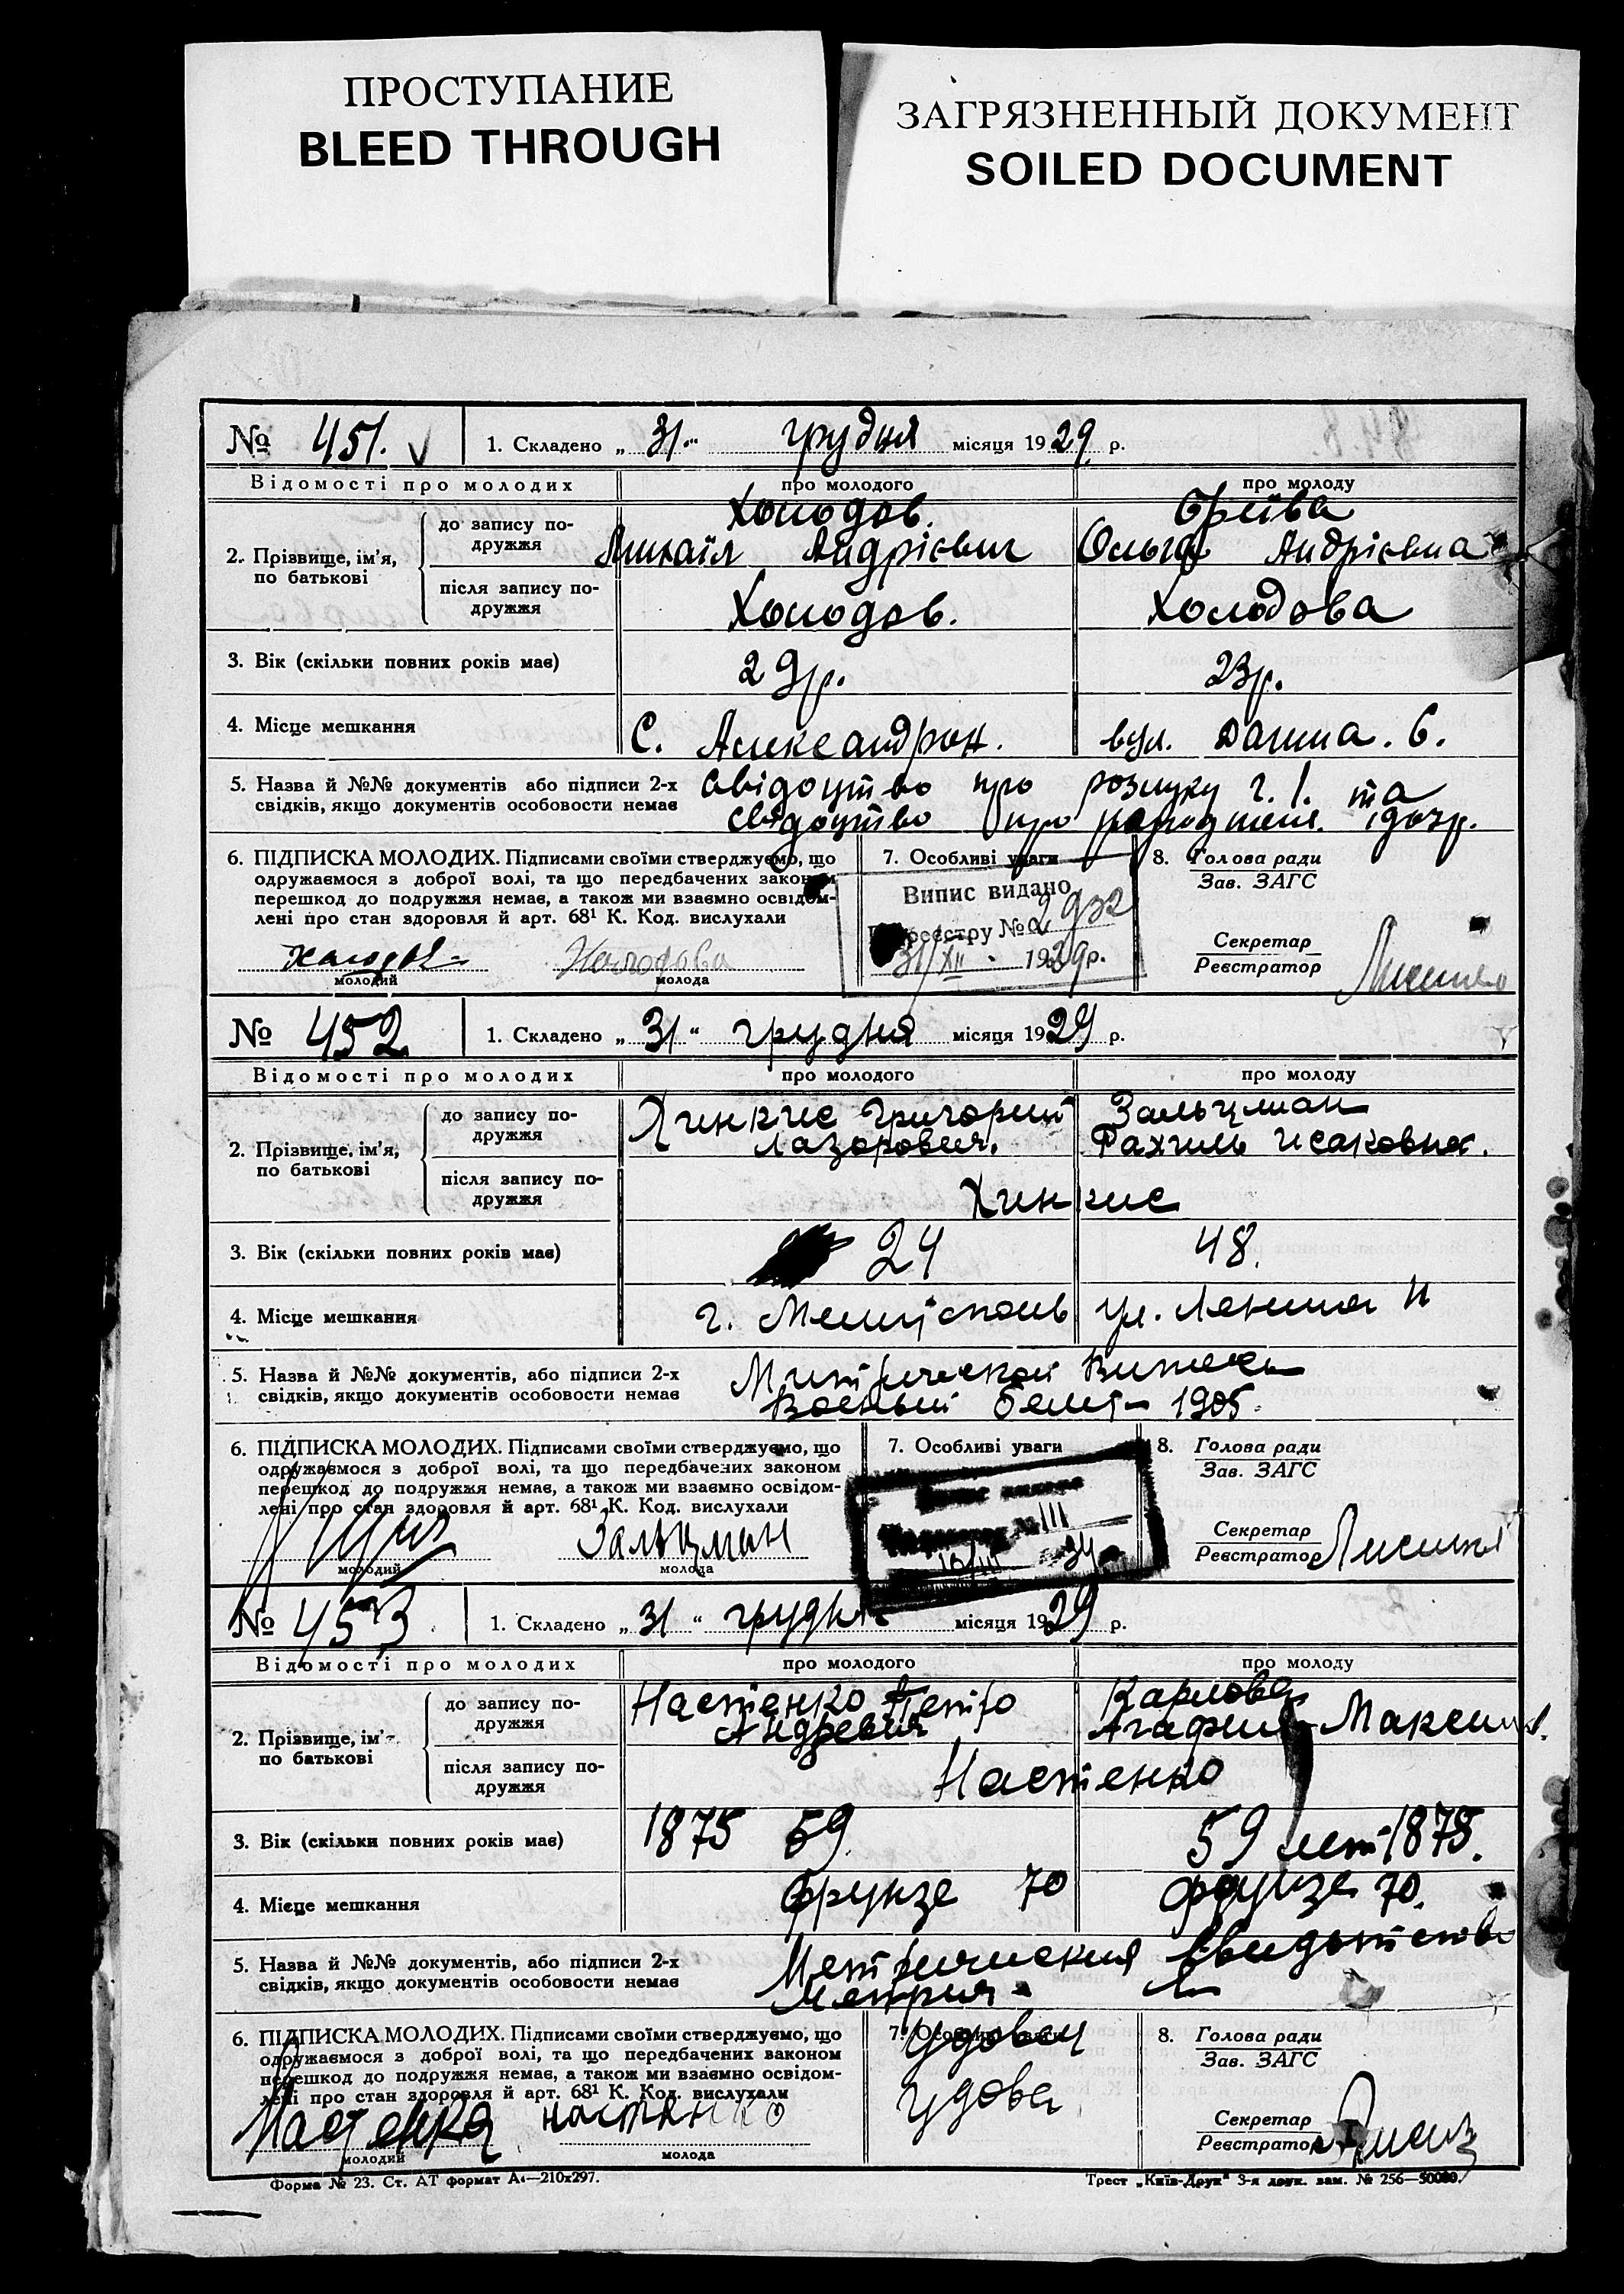 ПРОСТУПАНИЕ
BLEED THROUGH
ЗАГРЯЗНЕННЫЙ ДОКУМЕНТ
SOILED DOCUMENT
№ 451. 1. Складено „ 31 “ грудня місяця 1929 р.
Відомості про молодих про молодого про молоду
2. Прізвище, ім’я, по батькові
до запису подружжя
Холодов.
Михаїл Андрієвич
Ольга Андрієвна
після запису подружжя
Холодов. Холодова
3. Вік (скільки повних років має) 29р. 23р.
4. Місце мешкання С. Александрон. вул. 6.
5. Назва й №№ документів або підписи 2-х свідоцтво про розлуку г. 1. та
свідків, якщо документів особовости немає свідоцтво про
6. ПІДПИСКА МОЛОДИХ. Підписами своїми стверджуємо, що
одружаємося з доброї волі, та що передбачених законом
перешкод до подружжя немає, а також ми взаємно освідом-
лені про стан здоровля й арт. 68¹ К. Код. вислухали
Холодов Холодова
молодий молода
7. Особливі уваги
Випис видано
реєстру №
31/XII 1929р.
8. Голова ради
Зав. ЗАГС
Секретар
Реєстратор
№ 452 1. Складено „ 31 “ грудня місяця 1929 р.
Відомості про молодих про молодого про молоду
2. Прізвище, ім’я, по батькові
до запису подружжя
Хинкис Григорий Зальцман
Лазорович. Рахиль Исаковна.
після запису подружжя
Хинкис
3. Вік (скільки повних років має) 24 48.
4. Місце мешкання г. Мелитополь ул. Ленина
5. Назва й №№ документів, або підписи 2-х
свідків, якщо документів особовости немає Военый белет 1905.
6. ПІДПИСКА МОЛОДИХ. Підписами своїми стверджуємо, що
одружаємося з доброї волі, та що передбачених законом
перешкод до подружжя немає, а також ми взаємно освідом-
лені про стан здоровля й арт. 68¹ К. Код. вислухали
Зальцман
молодий молода
7. Особливі уваги
8. Голова ради
Зав. ЗАГС
Секретар
Реєстратор
№ 453 1. Складено „ 31 “ грудня місяця 1929 р.
Відомості про молодих про молодого про молоду
2. Прізвище, ім’я, по батькові
до запису подружжя
Настенко Петро Карлова
Андревич Агафия Максим.
після запису подружжя
Настенко
3. Вік (скільки повних років має) 1875 59 59 лет 1875.
4. Місце мешкання Фрунзе 70 Фрунзе 70.
5. Назва й №№ документів, або підписи 2-х
свідків, якщо документів особовости немає
6. ПІДПИСКА МОЛОДИХ. Підписами своїми стверджуємо, що
одружаємося з доброї волі, та що передбачених законом
перешкод до подружжя немає, а також ми взаємно освідом-
лені про стан здоровля й арт. 68¹ К. Код. вислухали
настенко
молодий молода
7. Особливі уваги
удовец
удова
8. Голова ради
Зав. ЗАГС
Секретар
Реєстратор
Форма № 23. Ст. АТ формат А4—210х297.
Трест „Київ-Друк“ 3-я друк. зам. № 256—50000.